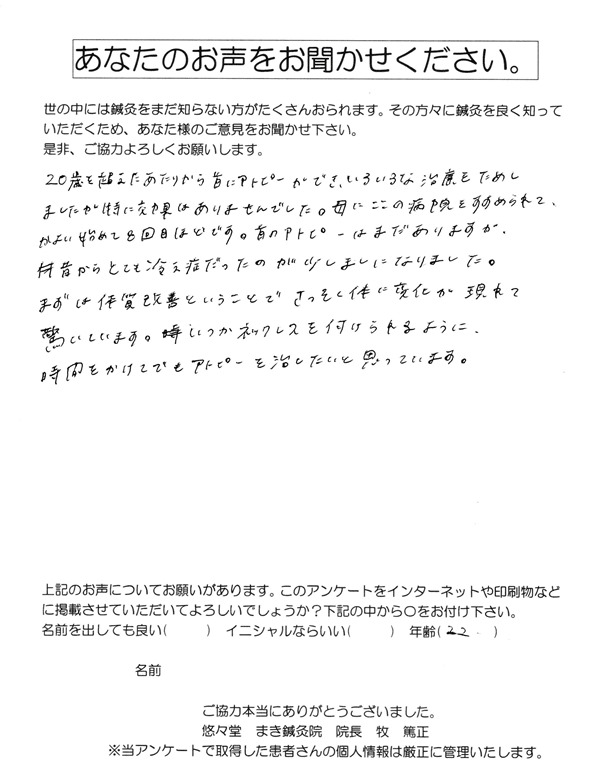 あなたのお声をお聞かせください。
世の中には鍼灸をまだ知らない方がたくさんおられます。その方々に鍼灸を良く知って
いただくため、あなた様のご意見をお聞かせ下さい。
是非、ご協力よろしくお願いします。
20歳を超えたあたりから首にアトピーができ、いろいろな治療をためし
ましたが特に効果はありませんでした。母にここの病院をすすめられて、
かよい始めて8回目ほどです。首のアトピーはまだありますが、
昔からとても冷え症だったのが少しましになりました。
まずは体質改善ということでさっそく体に変化が現れて
驚いています。いつかネックレスを付けられるように、
時間をかけてでもアトピーを治したいと思っています。
上記のお声についてお願いがあります。このアンケートをインターネットや印刷物など
に掲載させていただいてよろしいでしょうか？下記の中から○をお付け下さい。
名前を出しても良い(　　) イニシャルならいい(　　) 年齢(22　)
名前
ご協力本当にありがとうございました。
悠々堂　まき鍼灸院　院長　牧　篤正
※当アンケートで取得した患者さんの個人情報は厳正に管理いたします。